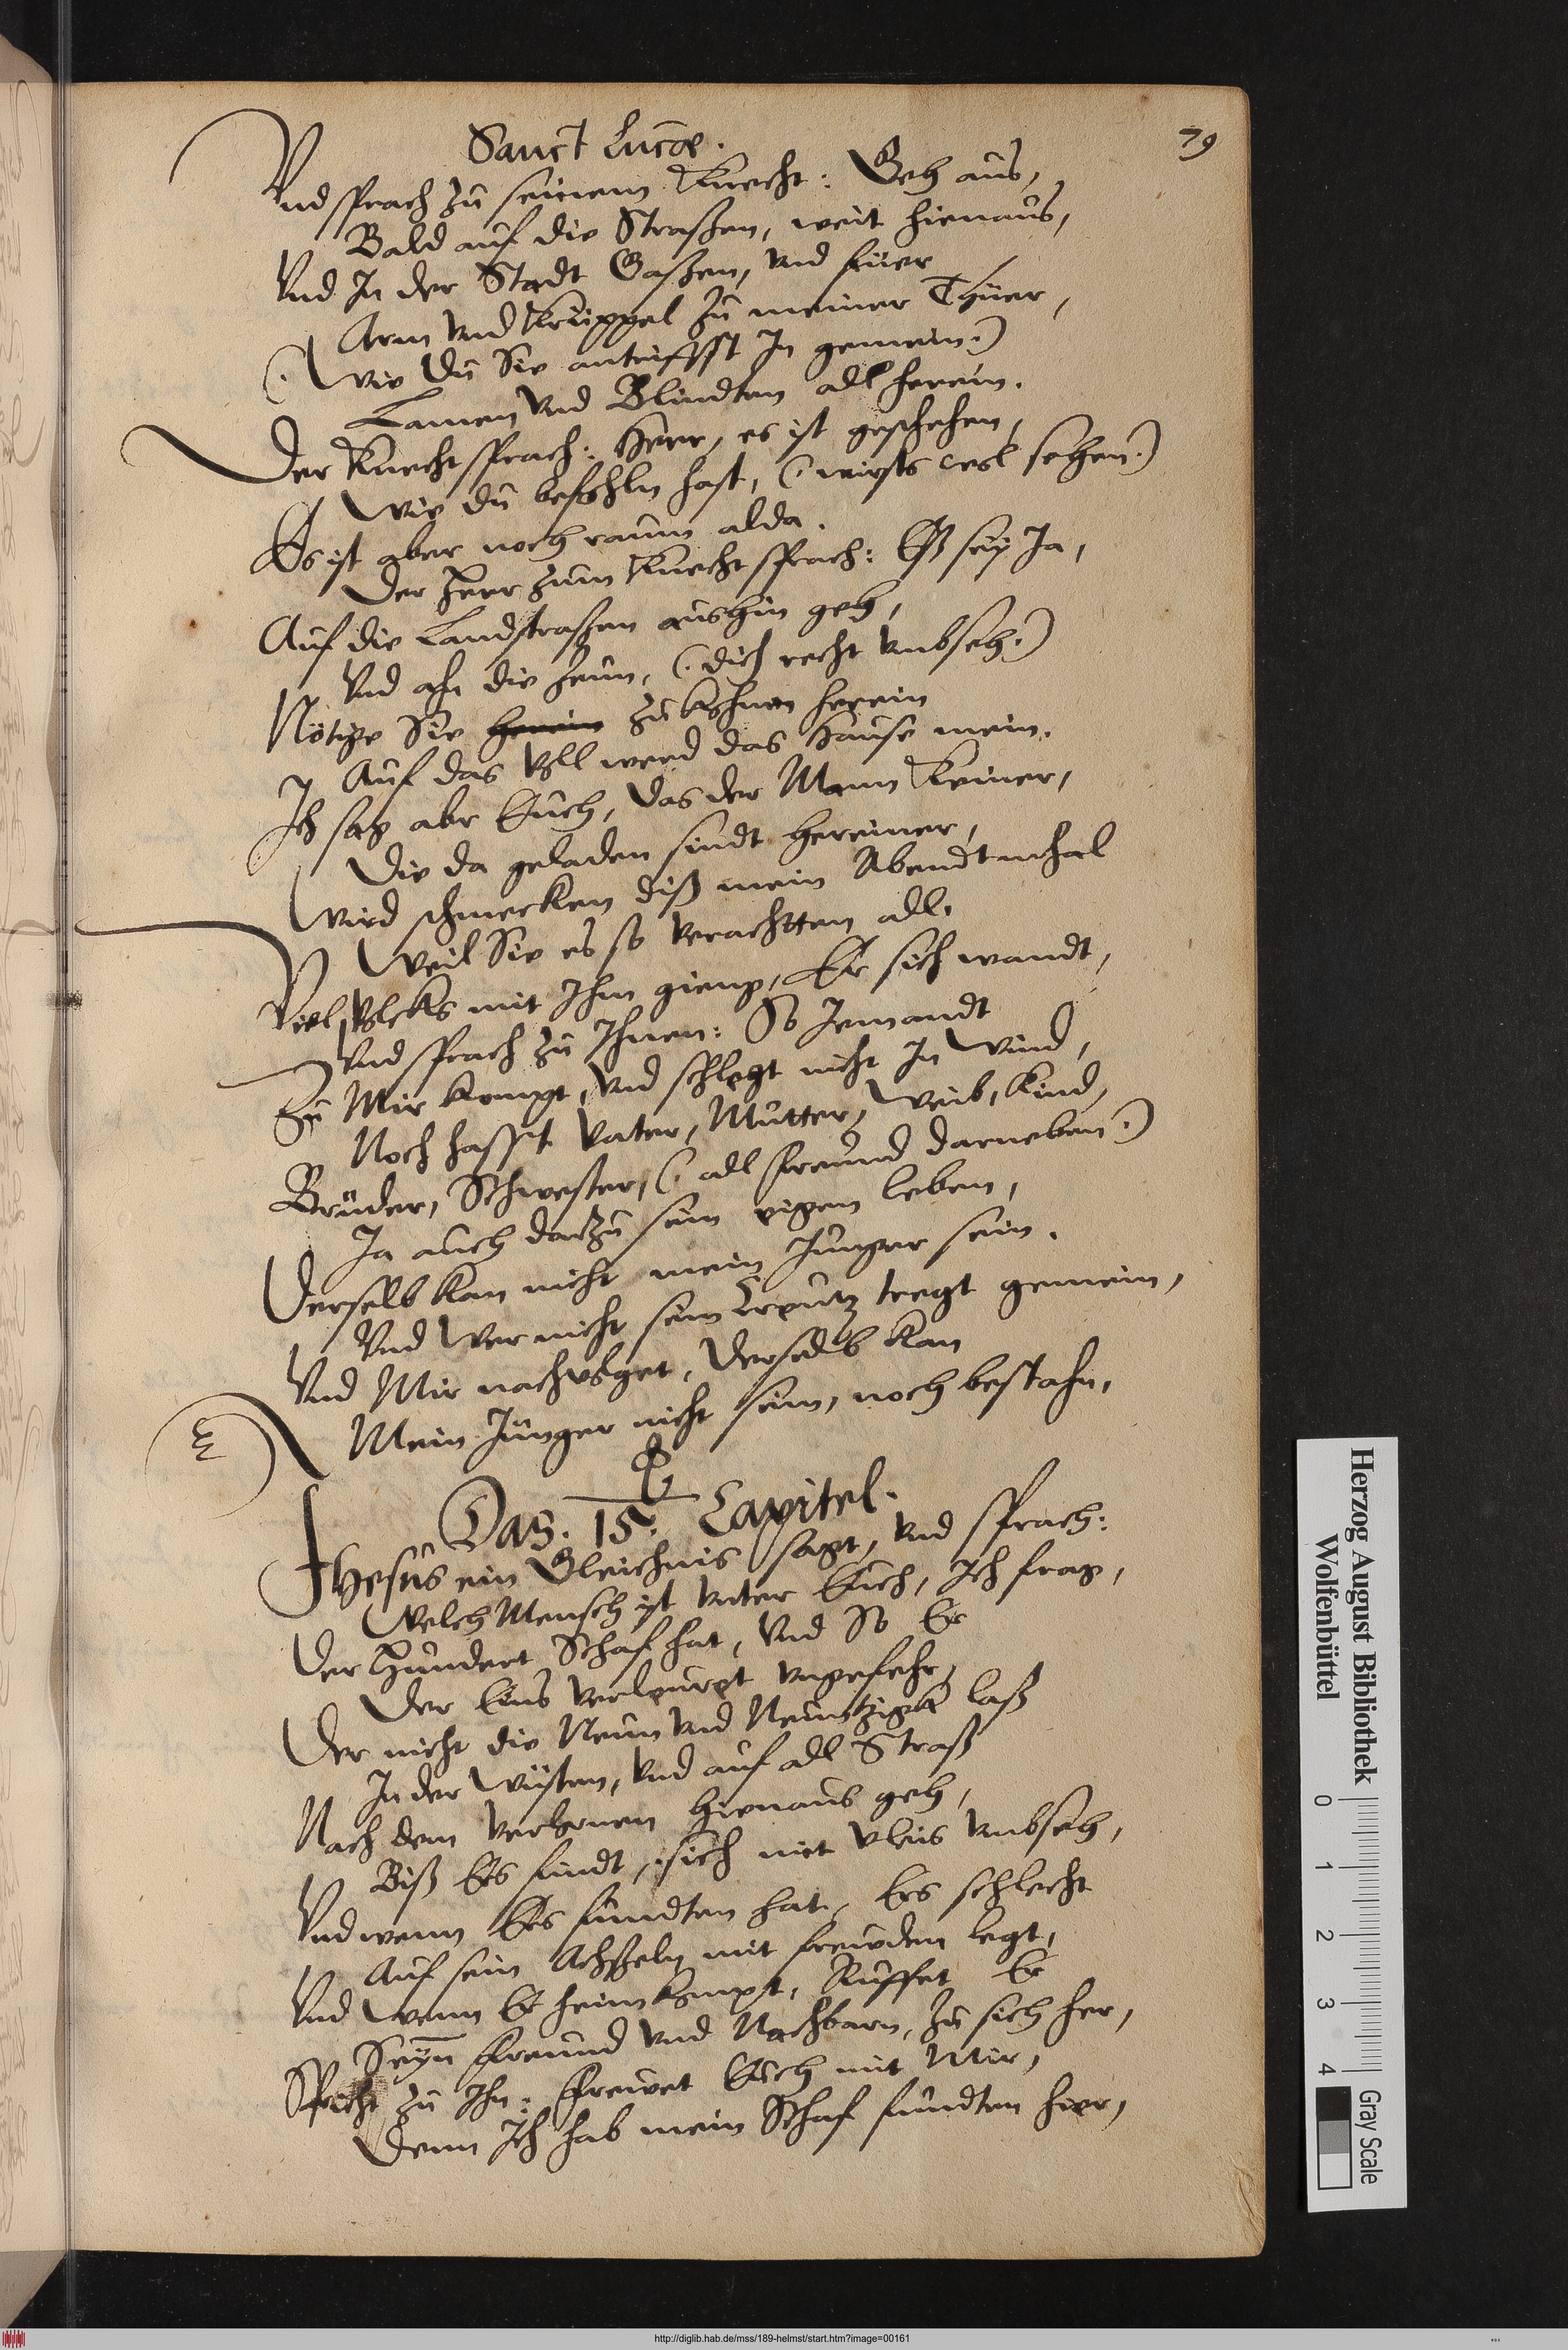 Sanct Lucæ.
79
Vnd sprach zu seinem Knecht: Geh aus,
Bald auf die Straßen, weit hienaus,
Vnd In der Stadt Gaßen, vnd füer
Arm vnd Krüppel zu meiner Thüer,
(. Wie du Sie antriffst In gemein.)
Lamen vnd Blindten all herein.
Der Knecht sprach: Herr, es ist geschehen,
Wie du befohln hast, (. wirsts wol sehen.)
Es ist aber noch raum alda.
Der Herr zum Knecht sprach: Eß sey Ja,
Auf die Landstraßen aushin geh,
Vnd ahn die Zeun, (. dich recht vmbseh.)
Nötige Sie herein zu kohmen herein
Auf das voll werd das Hause mein.
Ich sag abr Euch, das der Mann Keiner,
Die da geladen sindt hereiner,
Wird schmecken diß mein Abendtmhal
Weil Sie es so verachtten all.
Viel volcks mit Ihm gieng, Er sich wandt,
Vnd sprach zu Ihnen: So Iemandt
Zu Mir kompt, vnd schlegt nicht In Wind,
Noch hasst Vater, Mutter, Weib, Kind,
Brüder, Schwester, (. all freund darneben.)
Ja auch darzu sein eigen leben,
Derselb kan nicht mein Junger sein.
Vnd Wer nicht sein Creutz tregt gemein,
Vnd Mir nachvolget, derselb kan
Mein Jünger nicht sein, noch bestahn.
Das. 15. Capitel.
Jhesus ein Gleichnis sagt, vnd sprach:
Welch Mensch ist vnter Euch, Ich frag,
Der Hundert Schaf hat, vnd So Er
Der Eins verleuret vngefehr,
Der nicht die Neun vnd Neuntzigk laß
In der Wüsten, vnd auf all Straß
Nach dem verlornen hienaus geh,
Biß Ers findt, sich mit vleis vmbseh,
Vnd wenn Ers fundten hat, Ers schlecht
Auf sein Achßeln mit freuden legt,
Vnd Wenn Er heim kompt, Ruffet Er
Seyn freund vnd Nachbarn, zu sich her,
Spricht zu Ihn: freuet Euch mit Mir,
Denn Ich hab mein Schaf fundten hier,
Herzog August Bibliothek
Wolfenbüttel
0 1 2 3 4
Gray Scale
http://diglib.hab.de/mss/189-helmst/start.htm?image=00161